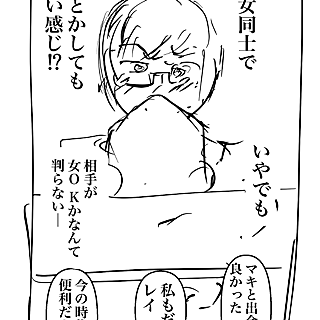 女同士で
とかしても
い感じ!?
いやでも
相手が
女OKかなんて
判らない―
マキと出会
良かった
私もだ
レイ
今の時
便利だ